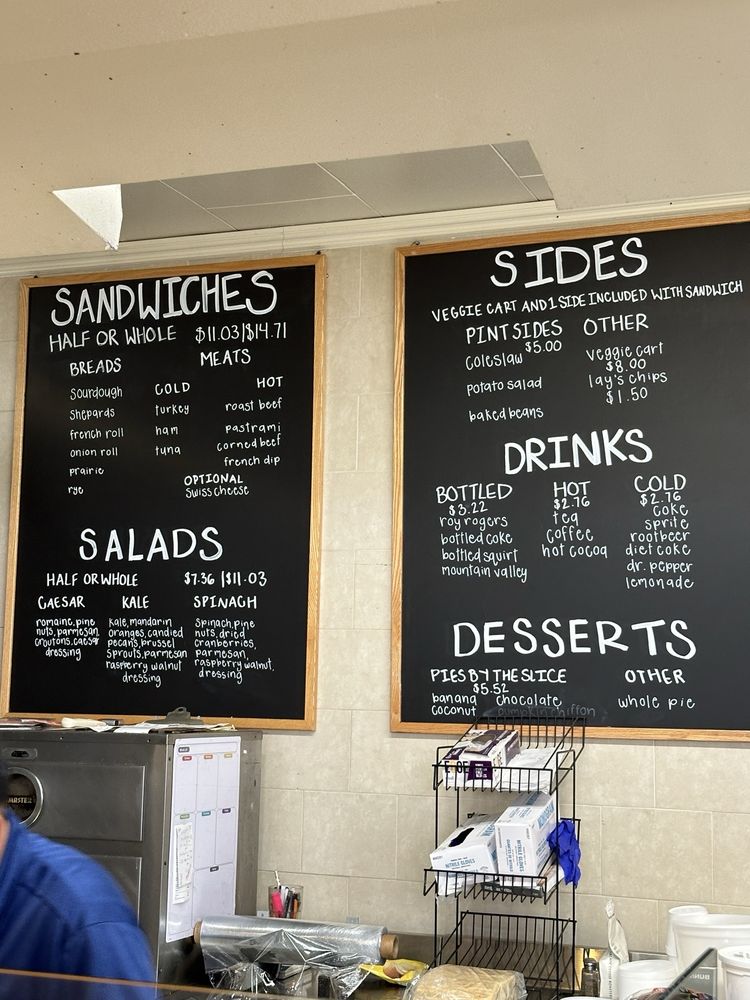 SANDWICHES
HALF OR WHOLE $11.03|$14.71
BREADS
Sourdough
Shepards
french roll
onion roll
prairie
rye
MEATS
COLD
turkey
ham
tuna
HOT
roast beef
pastrami
corned beef
french dip
OPTIONAL
Swiss cheese
SALADS
HALF OR WHOLE $7.36 |$11.03
CAESAR
romaine, pine
nuts, parmesan,
croutons, caesar
dressing
KALE
Kale, mandarin
oranges, candied
pecans, brussel
sprouts, parmesan
raspberry walnut
dressing
SPINACH
Spinach, pine
nuts, dried
cranberries,
parmesan,
raspberry walnut,
dressing
SIDES
VEGGIE CART AND 1 SIDE INCLUDED WITH SANDWICH
PINT SIDES
$5.00
Coleslaw
potato salad
baked beans
OTHER
Veggie cart
$8.00
lay's chips
$1.50
DRINKS
BOTTLED
$3.22
roy rogers
bottled coke
bottled squirt
mountain valley
HOT
$2.76
tea
Coffee
hot cocoa
COLD
$2.76
Coke
Sprite
rootbeer
diet coke
dr. pepper
lemonade
DESSERTS
PIES BY THE SLICE
$5.52
banana chocolate
coconut pumpkin chiffon
OTHER
whole pie
NITRILE GLOVES